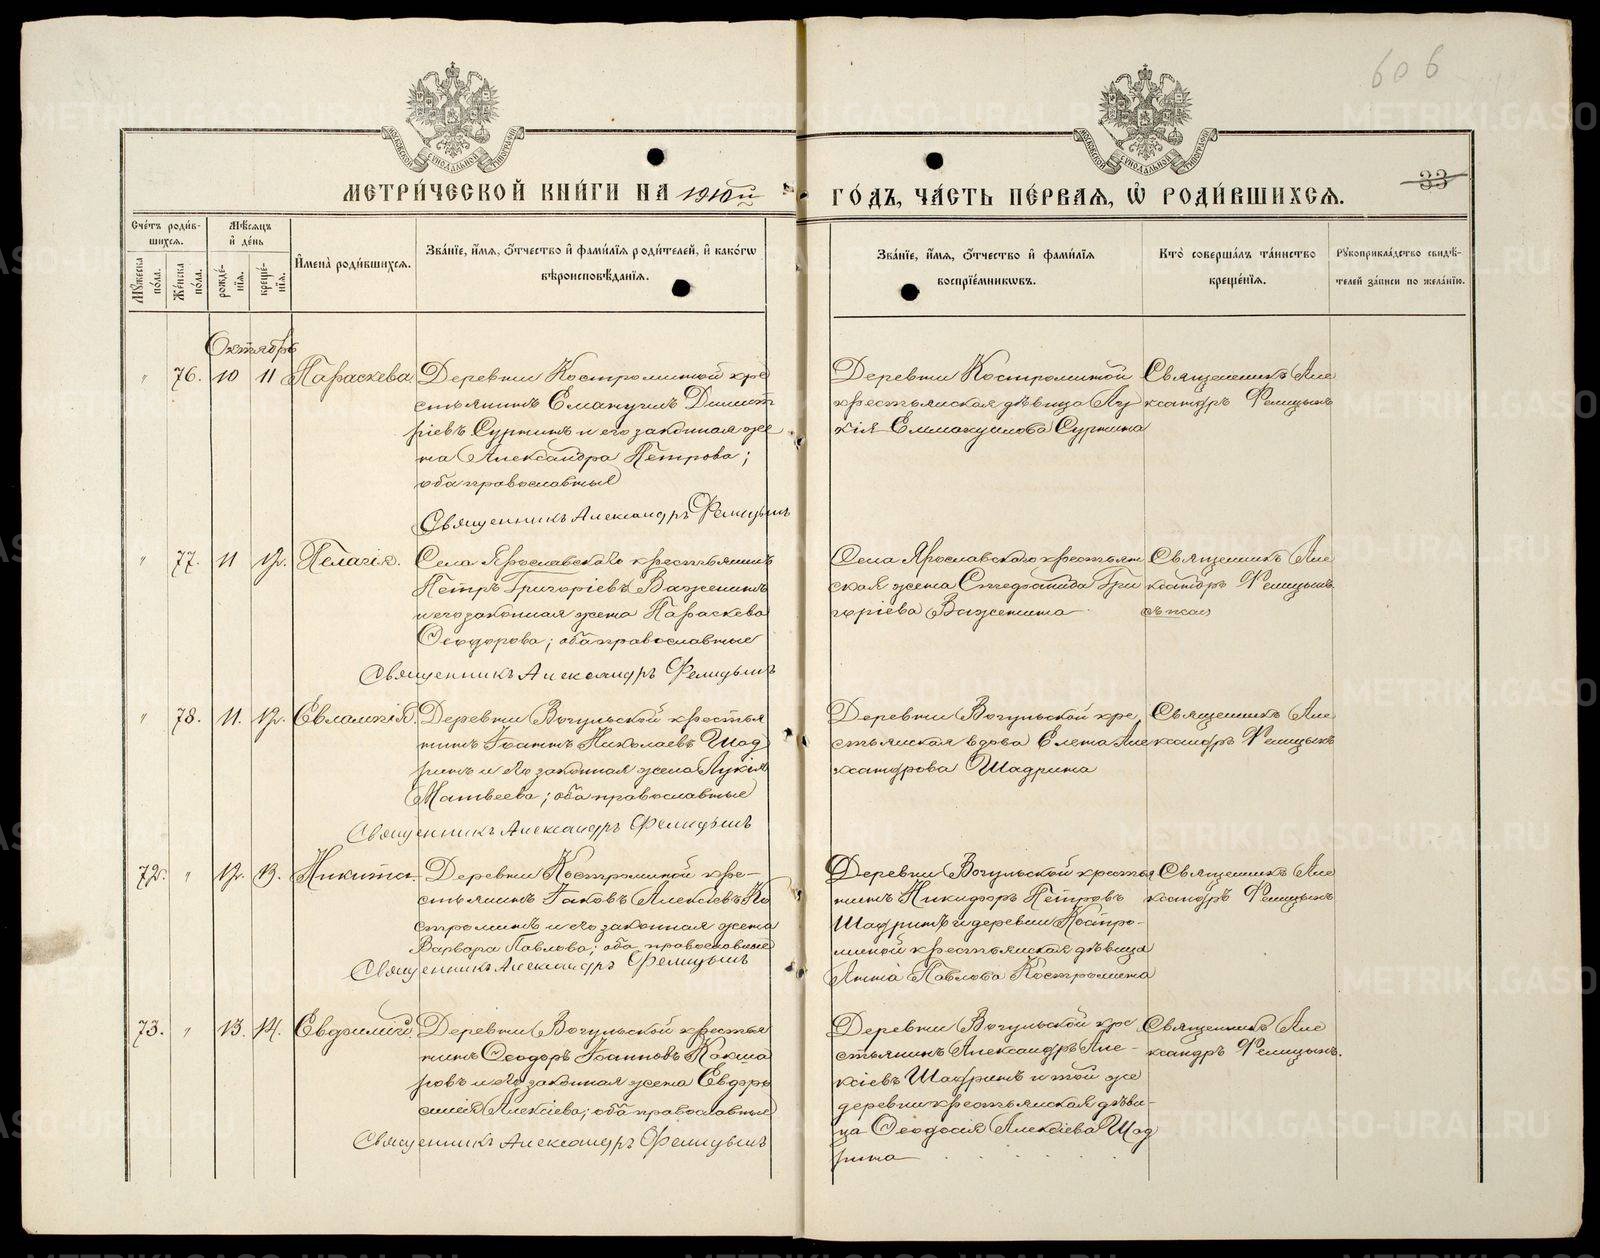 606
МЕТРИ́ЧЕСКОЙ КНИ́ГИ НА 1910й
ГО́ДЪ, ЧА́СТЬ ПЕ́РВАѦ, Ѿ РОДИ́ВШИХСѦ.
33
Сче́тъ роди́в-
шихсѧ.
Мꙋ́жеска по́ла.
Же́нска по́ла.
Мѣ́сѧцъ
и҆ де́нь
рожде́-
нїѧ.
креще́-
нїѧ.
И҆мена̀ роди́вшихсѧ.
Зва́нїе, и҆́мѧ, ѻ҆́тчество и҆ фами́лїѧ роди́телей, и҆ како́гѡ
вѣроисповѣ́данїѧ.
Зва́нїе, и҆́мѧ, ѻ҆́тчество и҆ фами́лїѧ
воспрїе́мникѡвъ.
Кто̀ соверша́лъ та́инство
креще́нїѧ.
Рꙋкоприкла́дство свидѣ́-
телей за́писи по жела́нїю.
Октябрь
" 76. 10 11 Параскева
Деревни Костроминой кре
стьянинъ Емануилъ Димит
ріевъ Суринъ и его законная же
на Александра Петрова;
оба православные
Священникъ Александръ Фелицынъ
Деревни Костроминой
крестьянская дѣвица Лу
кія Еммануилова Сурнина
Священникъ Але
ксандръ Фелицынъ
" 77. 11 12. Пелагія.
Села Ярославскаго крестьянинъ
Петръ Григоріевъ Важенинъ
и его законная жена Параскева
Ѳеодорова; оба православные
Священникъ Александръ Фелицынъ
Села Ярославского крестьян
ская жена Гри
горіева Важенина
Священникъ Але
ксандръ Фелицынъ
" 78. 11. 12. Евлампія.
Деревни Вогульской крестья
нинъ Іоаннъ Николаевъ Шад
ринъ и его законная жена Лукія
Матвеева; оба православные
Священникъ Александръ Фелицынъ
Деревни Вогульской кре
стьянская вдова Елена Але
ксандрова Шадрина
Священникъ Але
ксандръ Фелицынъ
72. " 12. 13. Никита.
Деревни Костроминой кре-
стьянинъ Іаковъ Алексіевъ Ко
строминъ и его законная жена
Варвара Павлова; оба православные
Священникъ Александръ Фелицынъ
Деревни Вогульской крестья
нинъ Никифоръ Петровъ
Шадринъ и деревни Костро-
миной крестьянская дѣвица
Анна Павлова Костромина
Священникъ Але
ксандръ Фелицынъ
73. " 13. 14. Евфимій.
Деревни Вогульской крестья
нинъ Ѳеодоръ Іоанновъ Кокша
ровъ и его законная жена Евфро
синія Алексіева; оба православные
Священникъ Александръ Фелицынъ
Деревни Вогульской кре
стьянинъ Александръ Але-
ксіевъ Шадринъ и той же
деревни крестьянская дѣви-
ца Ѳеодосія Алексіева Шад
рина
Священникъ Але
ксандръ Фелицынъ.